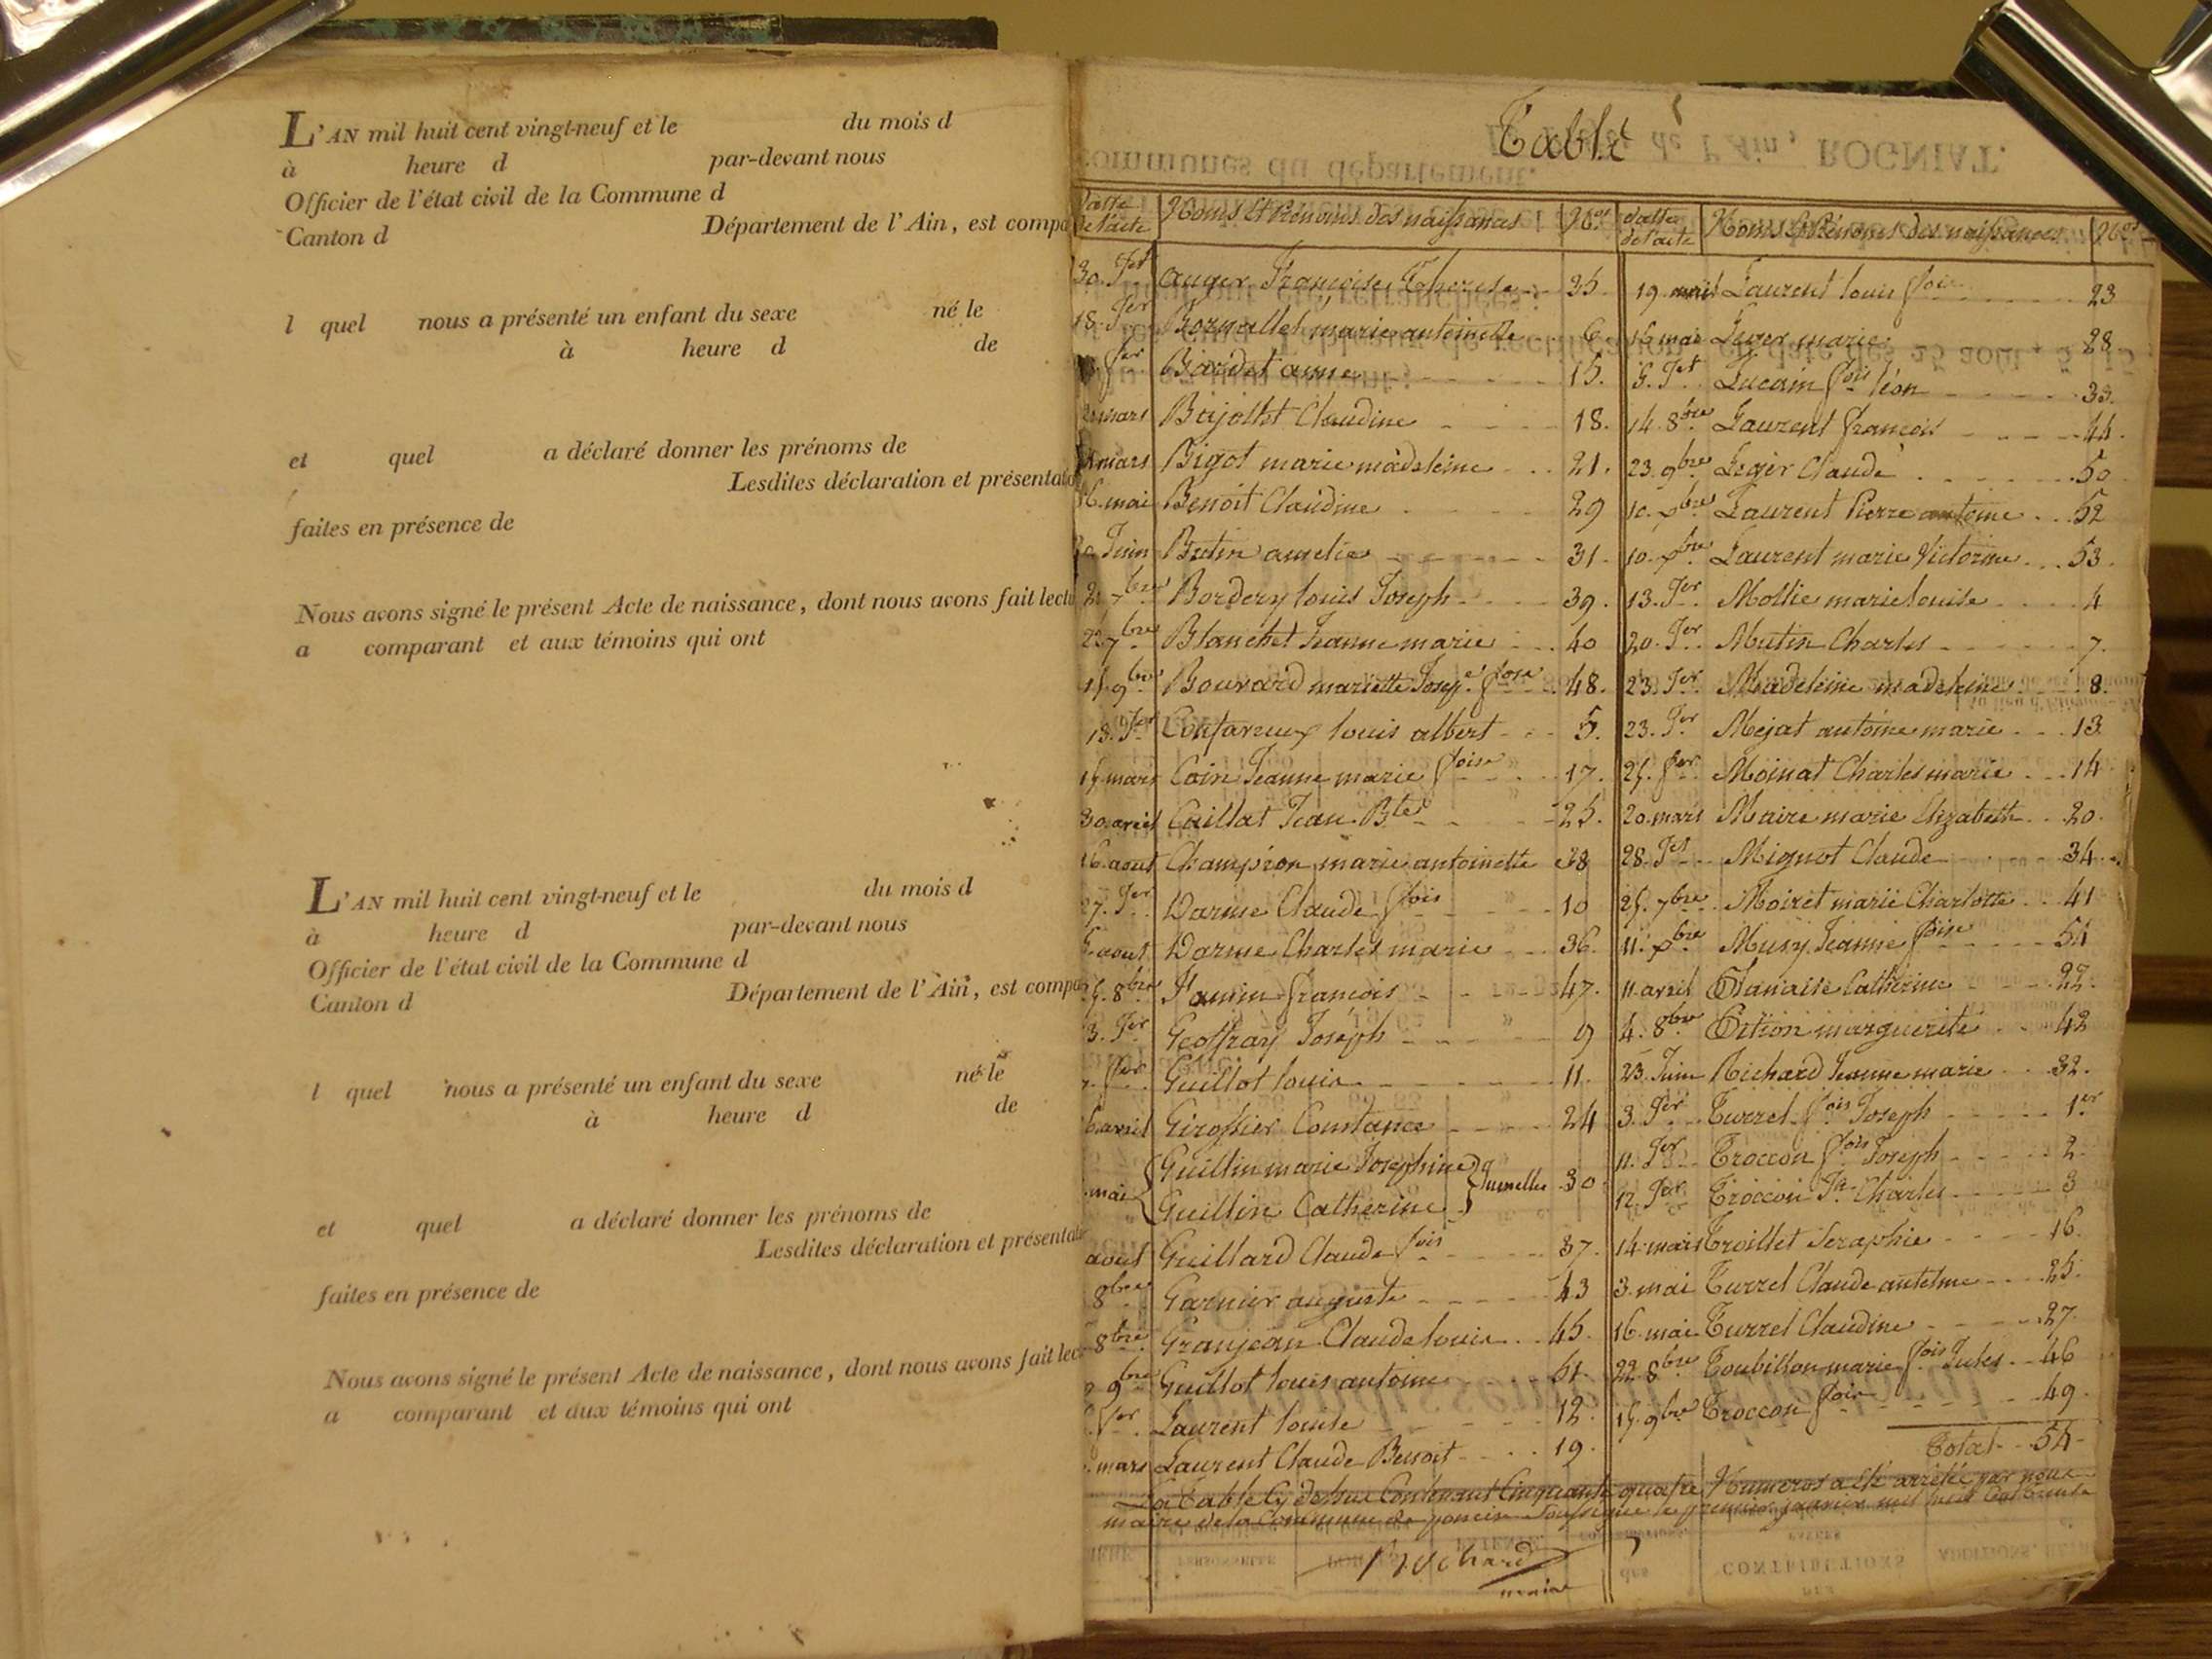 L'AN mil huit cent vingt-neuf et le du mois d
à heure d par-devant nous
Officier de l'état civil de la Commune d
Canton d Département de l'Ain, est compa
l quel nous a présenté un enfant du sexe né le
à heure d de
et quel a déclaré donner les prénoms de
Lesdites déclaration et présentatio
faites en présence de
Nous avons signé le présent Acte de naissance, dont nous avons fait lectu
a comparant et aux témoins qui ont
L'AN mil huit cent vingt-neuf et le du mois d
à heure d par-devant nous
Officier de l'état civil de la Commune d
Canton d Département de l'Ain, est compa
l quel nous a présenté un enfant du sexe né le
à heure d de
et quel a déclaré donner les prénoms de
Lesdites déclaration et présentatio
faites en présence de
Nous avons signé le présent Acte de naissance, dont nous avons fait lec
a comparant et aux témoins qui ont
Table
datte de l'acte Noms et Prénoms des naissances Nos
30. Jet auger Françoise Therese 35.
18. Jer marie antoinette 6.
fer Bardet anne 15.
mars Bajollet Claudine 18.
mars Bigot marie madeleine 21.
16. mai Benoit Claudine 29
Juin Butin amelie 31.
2. 7bre Bordery louis Joseph 39.
22 7bre Blanchet Jeanne marie 40
15. 9bre Bouvard mariette 48.
18. Jer louis albert 5.
15. mars Coin Jeanne marie foise 17.
30. avril Caillat Jean Bte 25.
16. aout Champion marie antoinette 38
27. Jer Darme Claude fois 10
5. aout Darme Charles marie 36.
5. 8bre Jamin francois 47.
3. Jer Geoffray Joseph 9
fer Guillot louis 11.
6. avril Giroffier Constance 24
mai Guillin marie Josephine
Guillin Catherine Jumelles 30
aout Guillard Claude fois 37.
8bre Garnier auguste 43
8bre Granjean Claude louis 45.
9bre Guillot louis antoine 51.
fer Laurent louise 12.
mars Laurent Claude Benoit 19.
datte de l'acte Noms & Prénoms des naissances Nos
19. Laurent louis fois 23
16 mai Leger marie 28.
5. Jet Lucain fois léon 33.
14. 8bre Laurent francois 44.
23. 9bre Leger Claude 50
10. xbre Laurent Pierre antoine 52
10. xbre Laurent marie Victorine 53.
13. Jer Mollie marie louise 4
20. Jer Mutin Charles 7.
23. Jer Madeleine madeleine 8.
23. Jer Mejat antoine marie 13
25. fer Moinat Charles marie 14
20. mars Maire marie Elizabeth 20.
28. Jet Mignot Claude 34.
25. 7bre Moiret marie Charlotte 41
11. xbre Musy Jeanne foise 54
11. avril Catherine 22.
4. 8bre marguerite 42
23. Juin Richard Jeanne marie 32.
3. Jer Turrel fois Joseph 1er
11. Jer Troccon fois Joseph 2.
12. Jer Troccon Charles 3
14. mars Troillet Seraphie 16.
3. mai Turrel Claude antelme 25.
16. mai Turrel Claudine 27.
22. 8bre Toubillon marie fois Jules 46
15. 9bre Troccon fois 49.
Total 54
La Table Cy dessus Contenant Cinquante quatre Numeros a été arrêtée par nous
maire de la Commune de poncin Soussigné le premier janvier mil huit Cent trente
maire